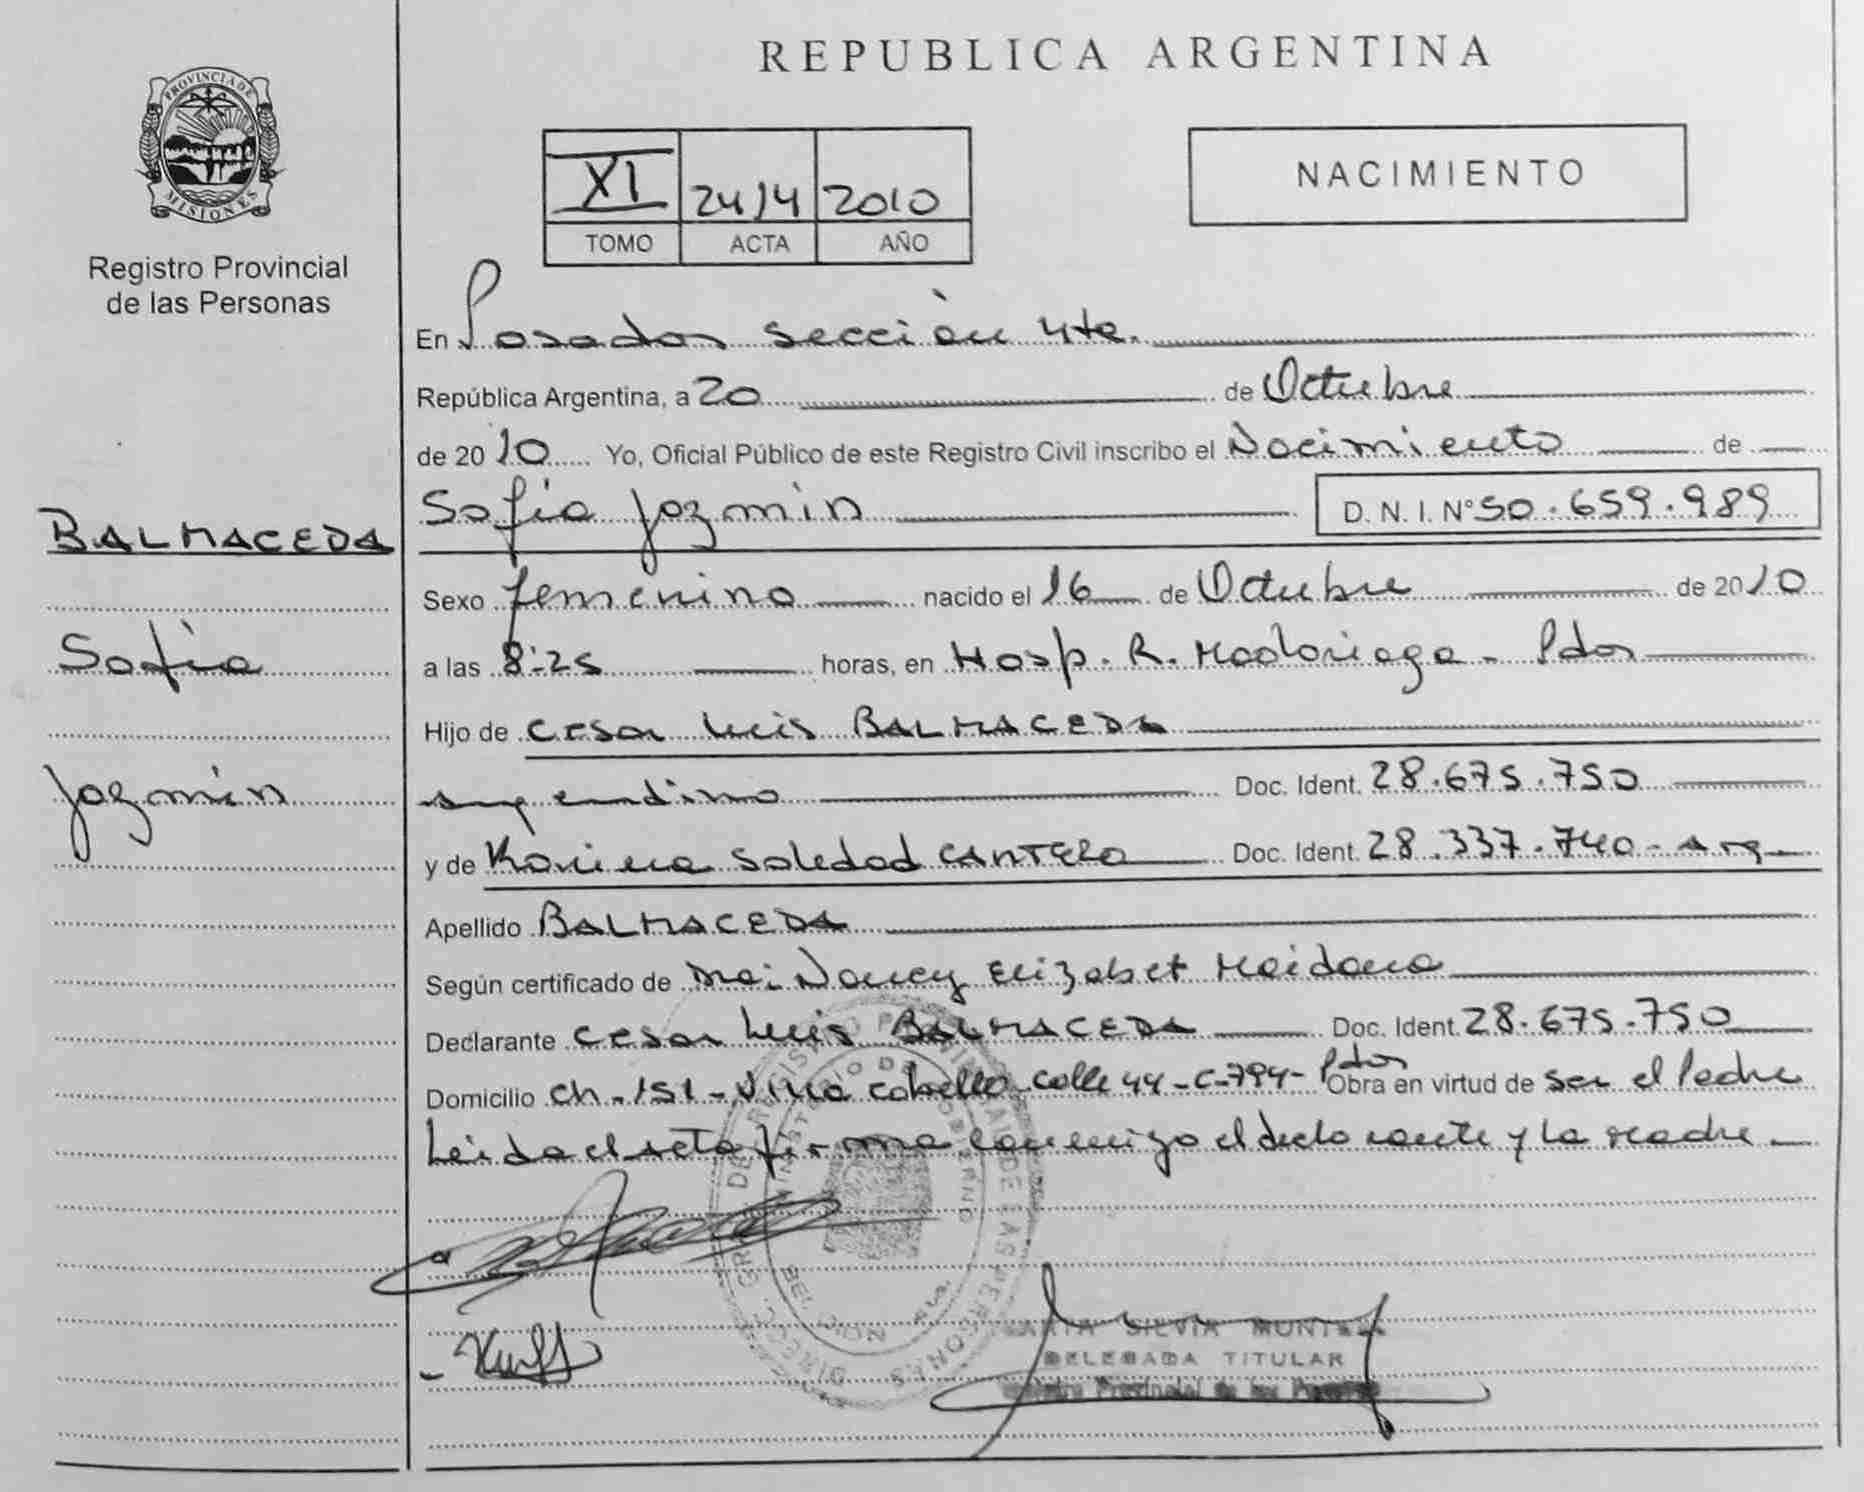 REPUBLICA ARGENTINA
PROVINCIA DE MISIONES
Registro Provincial
de las Personas
XI 2414 2010
TOMO ACTA AÑO
NACIMIENTO
En Posadas sección 4ta.
República Argentina, a 20 de Octubre
de 2010 Yo, Oficial Público de este Registro Civil inscribo el Nacimiento de
Sofia Jazmin D. N. I. Nº 50.659.989
BALMACEDA
Sofia
Jazmin
Sexo femenino nacido el 16 de Octubre de 2010
a las 8:25 horas, en Hosp. R. Madariaga - Pdas
Hijo de Cesar Luis BALMACEDA
argentino Doc. Ident. 28.675.750
y de Karina Soledad CANTERO Doc. Ident. 28.337.740 - Arg.
Apellido BALMACEDA
Según certificado de Nancy Elizabet Maidana
Declarante Cesar Luis BALMACEDA Doc. Ident. 28.675.750
Domicilio Ch. 151 - Villa Cabello - Calle 44 - C-794 - Pdas Obra en virtud de ser el Padre
Leida el acta firma conmigo el declarante y la madre
SILVIA
DELEGADA TITULAR
Registro Provincial de las Personas